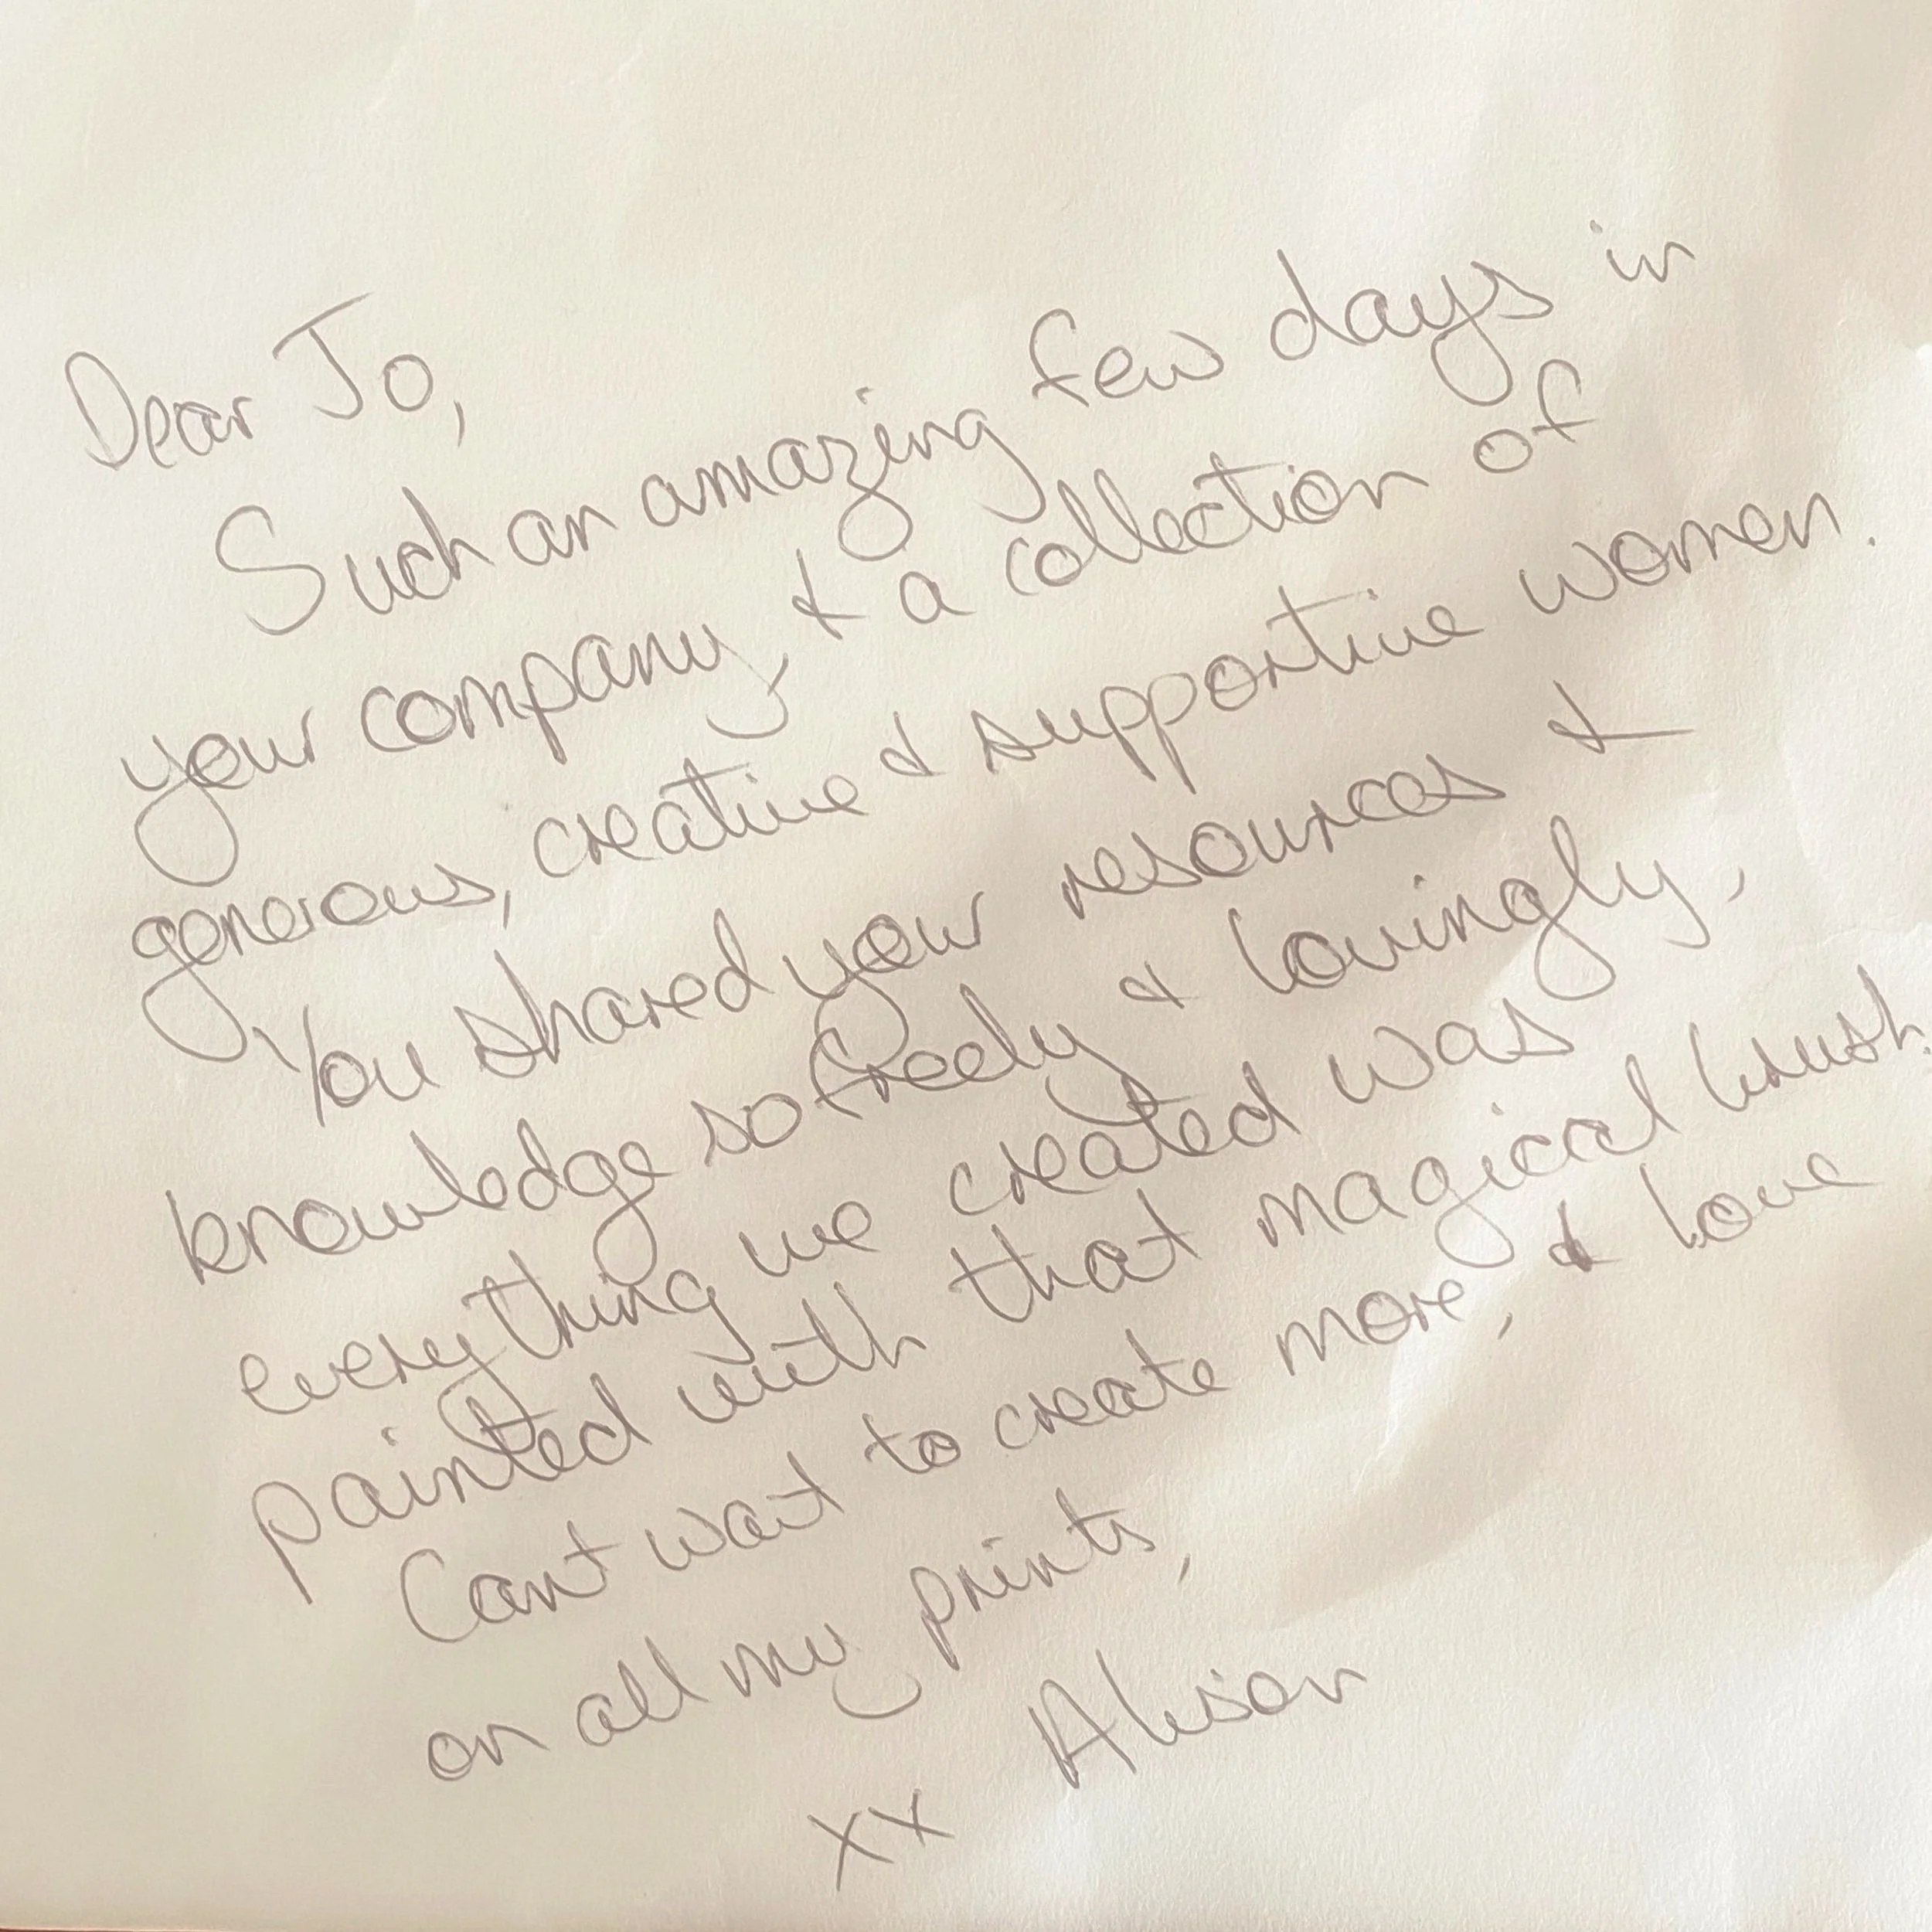 Dear Jo,
Such an amazing few days in
your company, & a collection of
generous, creative & supportive women.
You shared your resources &
knowledge so freely & lovingly,
everything we created was
painted with that magical brush.
Cant wait to create more, & love
on all my prints,
xx Alison